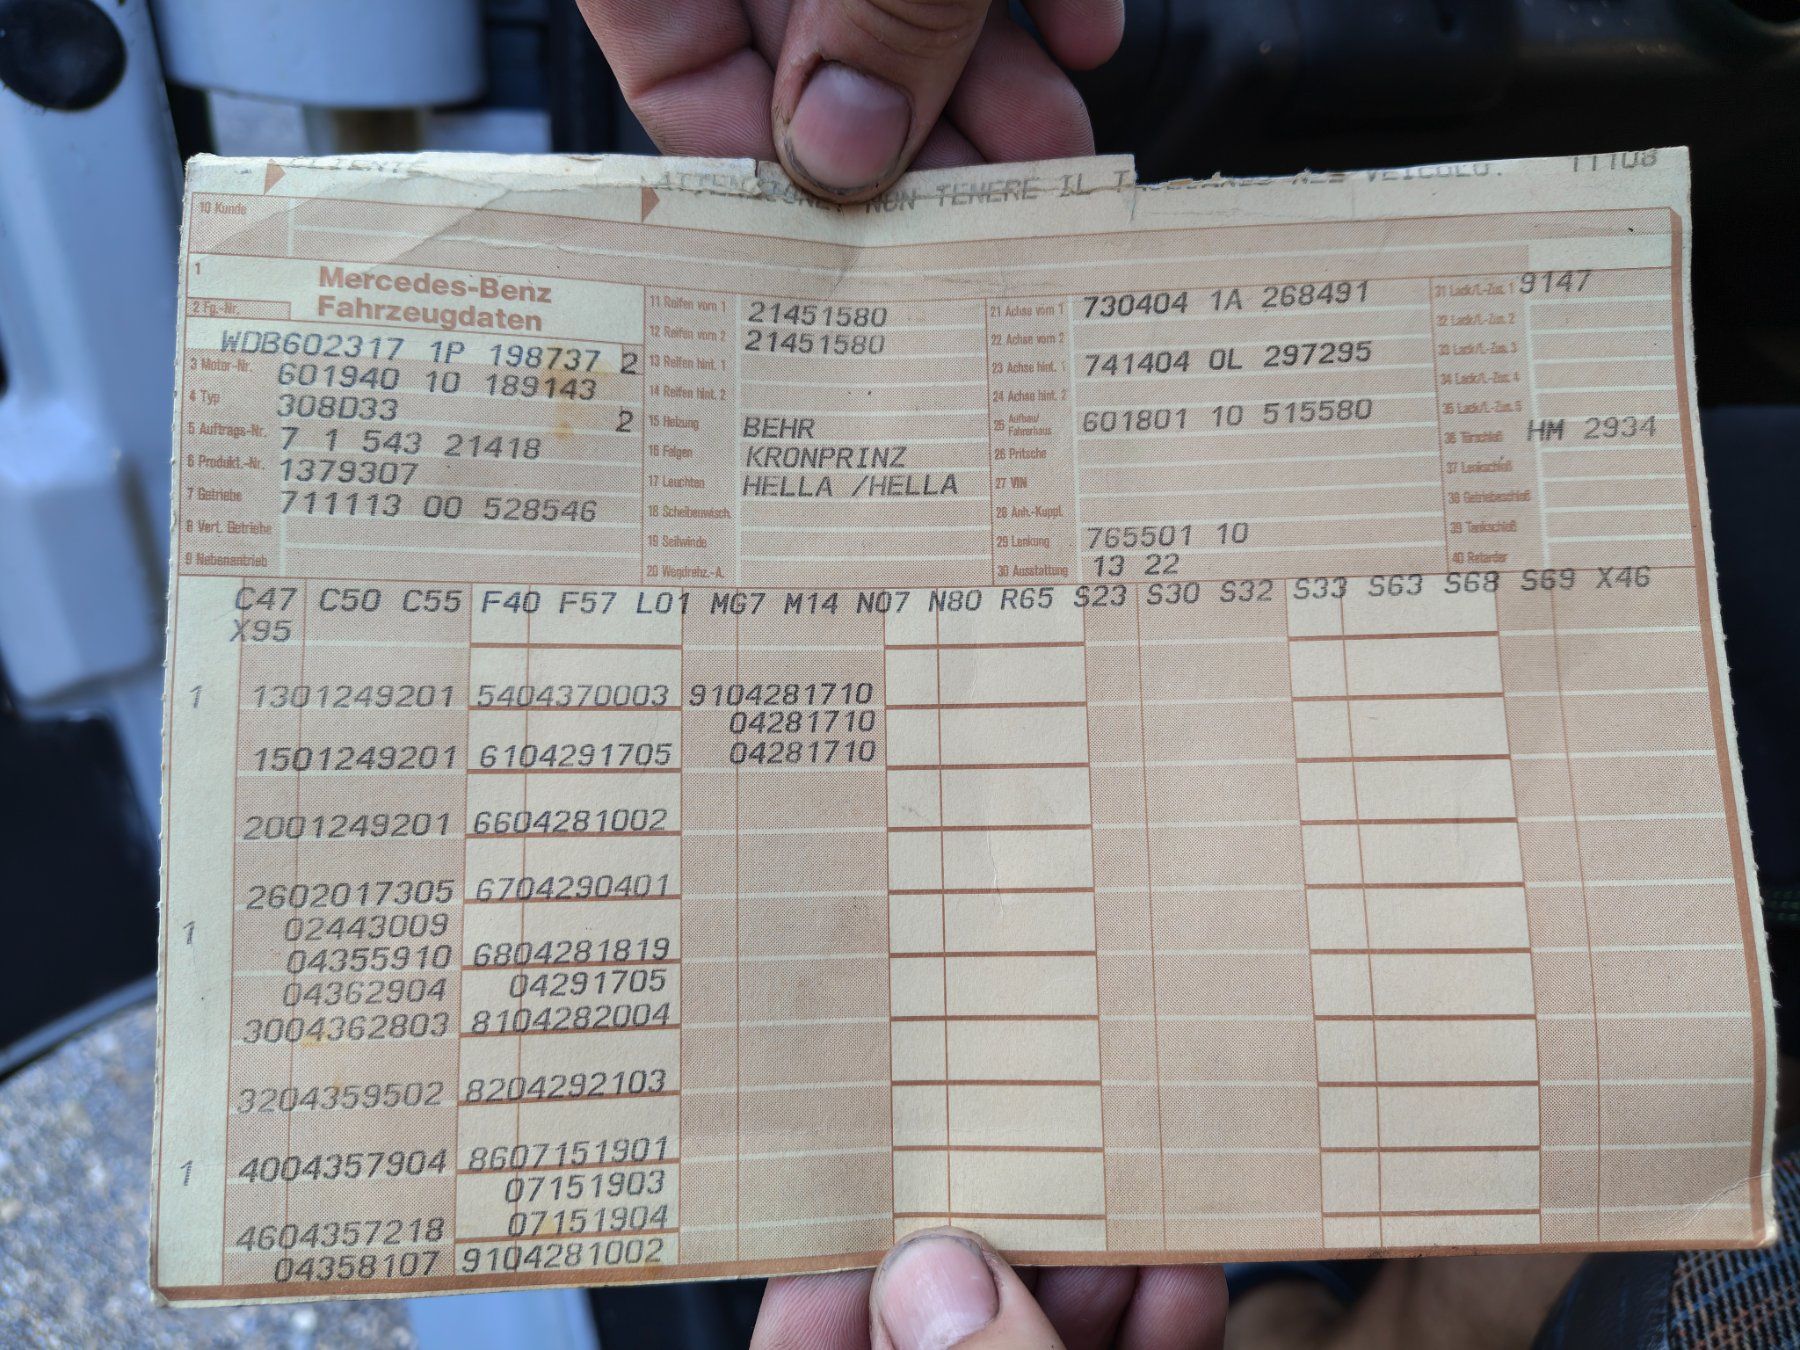 ATTENZIONE: NON TENERE IL VEICOLO. 11108
10 Kunde
1 Mercedes-Benz
Fahrzeugdaten
2 Fg.-Nr.
WDB602317 1P 198737 2
3 Motor-Nr. 601940 10 189143
4 Typ 308D33 2
5 Auftrags-Nr. 7 1 543 21418
6 Produkt.-Nr. 1379307
7 Getriebe 711113 00 528546
8 Vert. Getriebe
9 Nebenantrieb
11 Reifen vorn 1 21451580
12 Reifen vorn 2 21451580
13 Reifen hint. 1
14 Reifen hint. 2
15 Heizung BEHR
16 Felgen KRONPRINZ
17 Leuchten HELLA /HELLA
18 Scheibenwasch.
19 Seilwinde
20 Wegdrehz.-A.
21 Achse vorn 1 730404 1A 268491
22 Achse vorn 2
23 Achse hint. 1 741404 0L 297295
24 Achse hint. 2
25 Aufbau/
Fahrerhaus 601801 10 515580
26 Pritsche
27 VIN
28 Anh.-Kuppl.
29 Lenkung 765501 10
30 Ausstattung 13 22
31 Lack/L-Zus. 1 9147
32 Lack/L-Zus. 2
33 Lack/L-Zus. 3
34 Lack/L-Zus. 4
35 Lack/L-Zus. 5
36 Türschloß HM 2934
37 Lenkschloß
38 Getriebeschloß
39 Tankschloß
40 Retarder
C47 C50 C55 F40 F57 L01 MG7 M14 N07 N80 R65 S23 S30 S32 S33 S63 S68 S69 X46
X95
1 1301249201 5404370003 9104281710
04281710
1501249201 6104291705 04281710
2001249201 6604281002
2602017305 6704290401
1 02443009
04355910 6804281819
04362904 04291705
3004362803 8104282004
3204359502 8204292103
1 4004357904 8607151901
07151903
4604357218 07151904
04358107 9104281002